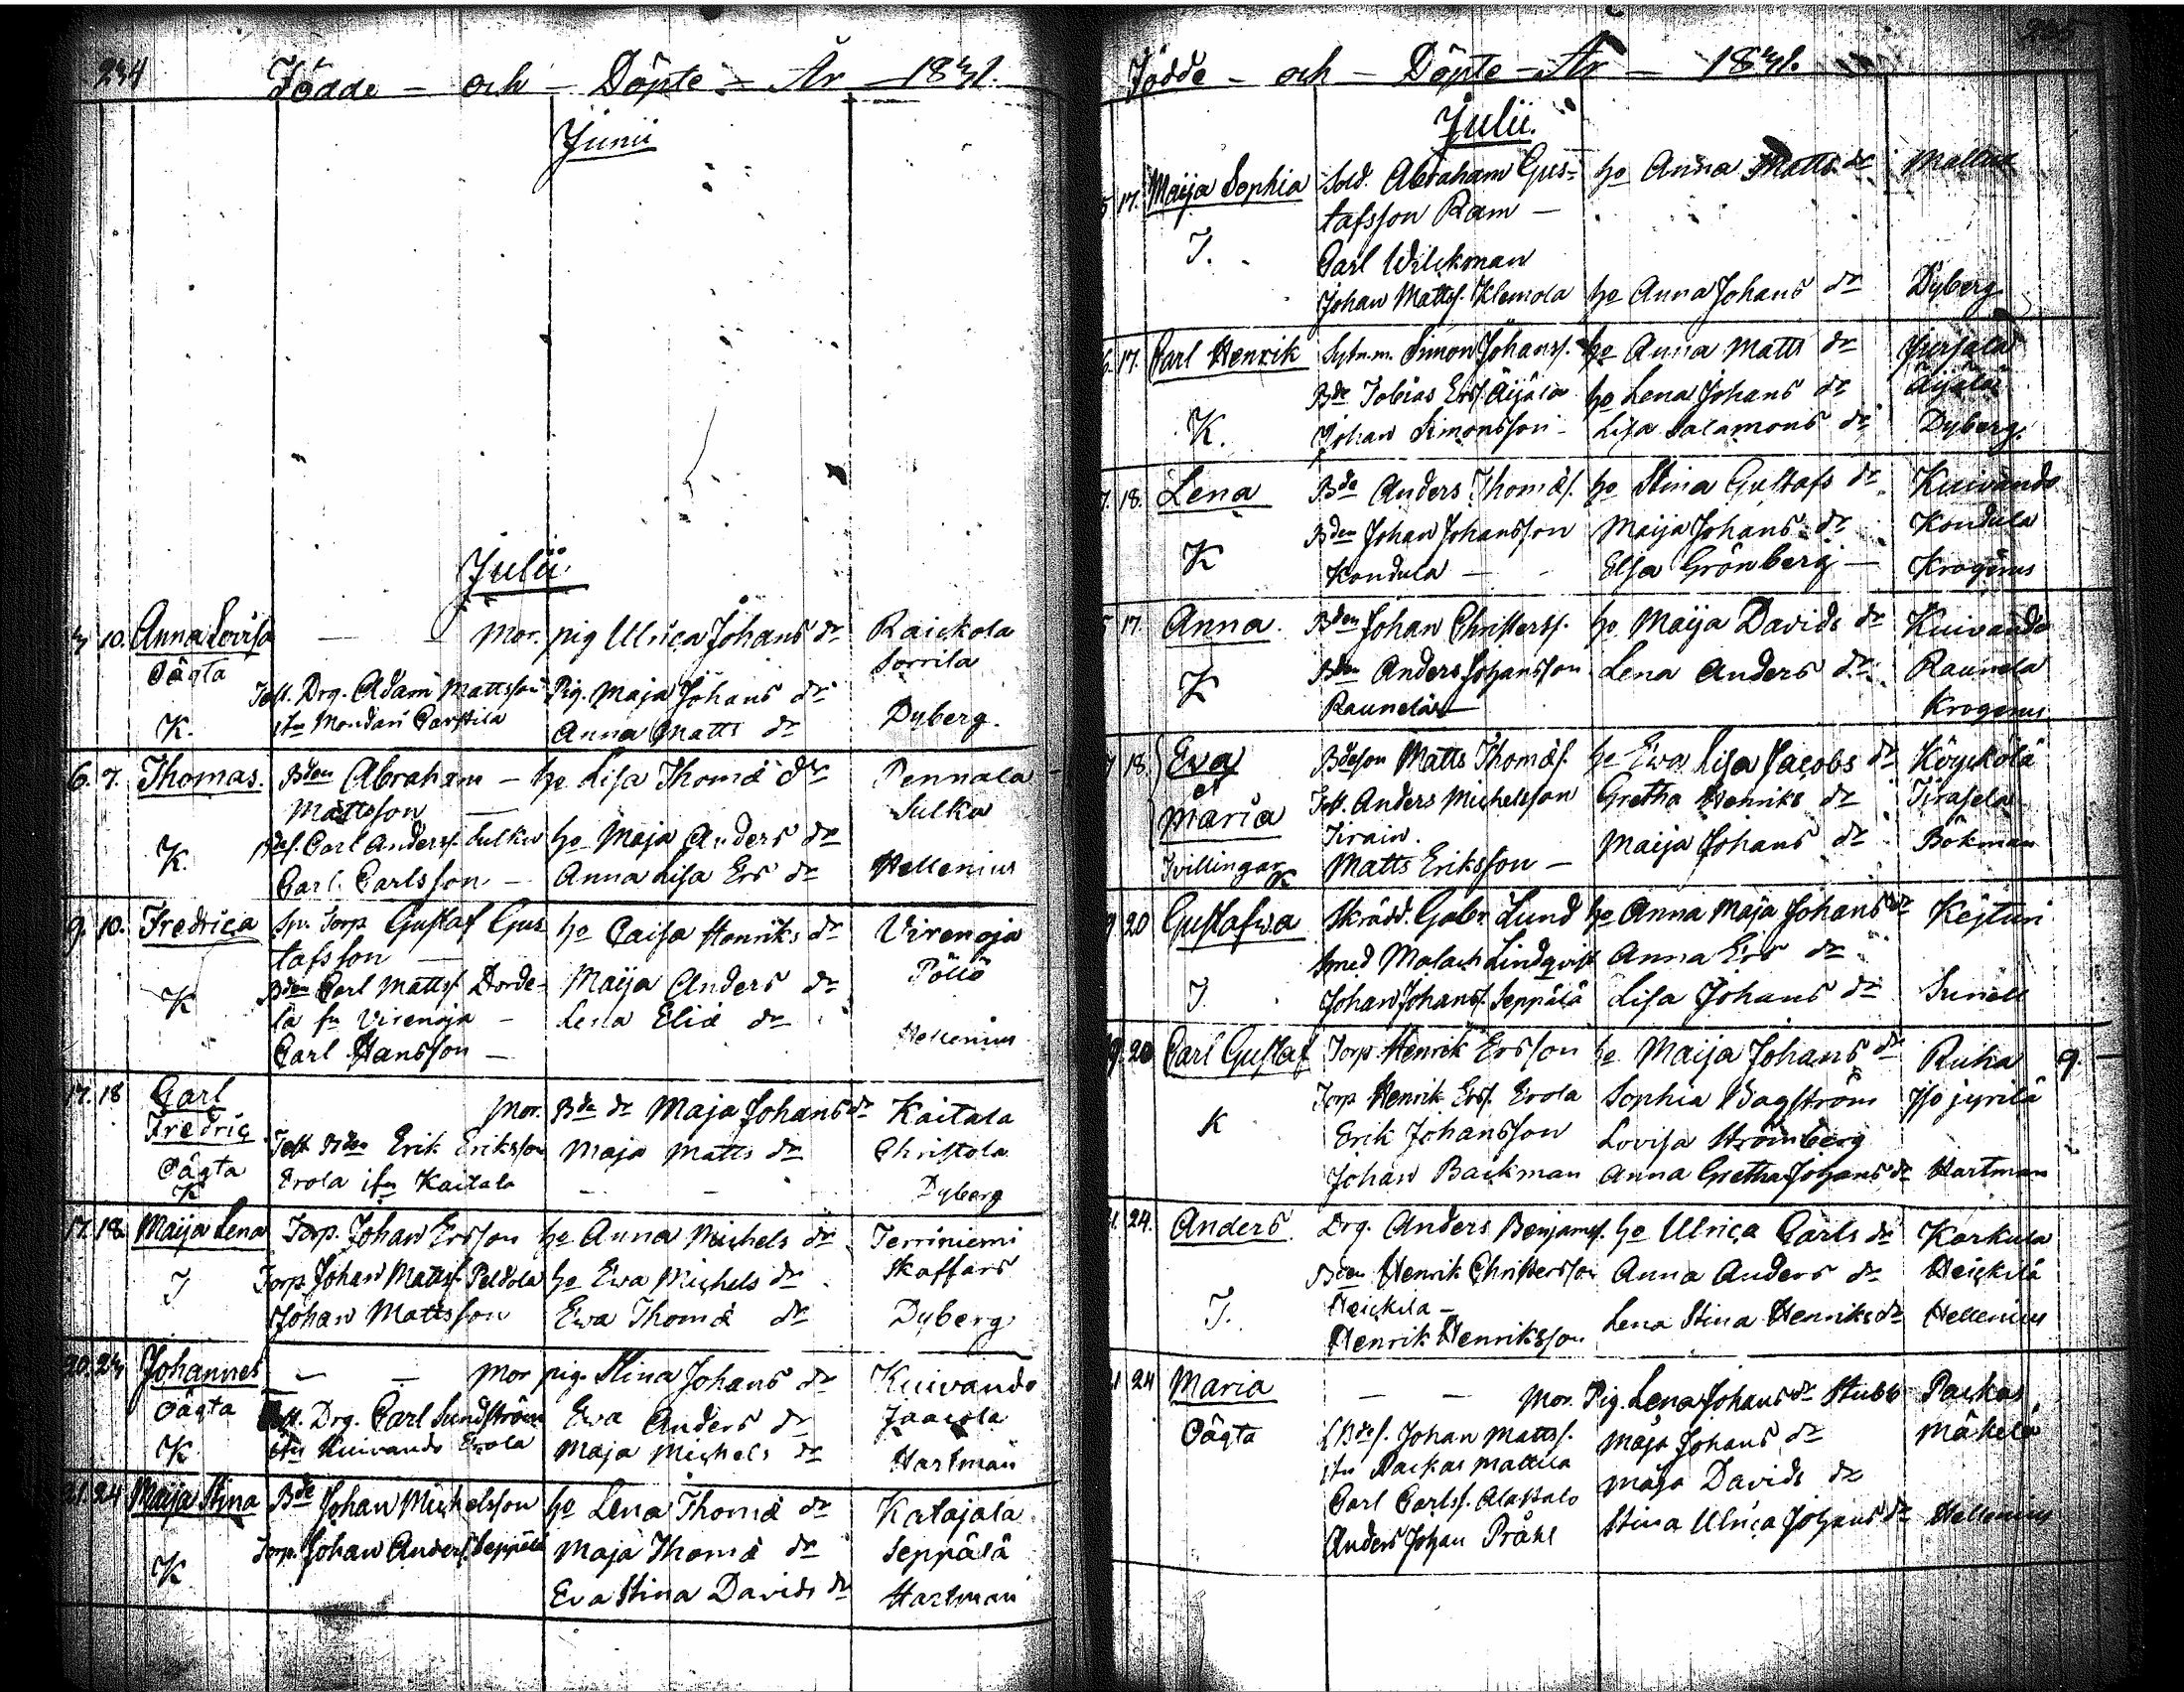 234
Födde - och - Döpte - År - 1831.
Junii
Julii
3 10. Anna Lovisa - Mor. pig Ulrica Johans dr Raickola
Oägta Sorrila
Test. Drg. Adam Mattsson Pig. Maja Johans dr
K. Anna Matts dr Dyberg.
6. 7. Thomas. Bden Abraham - ho Lisa Thomæ dr Pennala
Mattsson Sulku
K. Bdes. Carl Anderss. Sulku ho Maja Anders dr
Carl Carlsson - Anna Lisa Ers dr Hellenius
9. 10. Fredrica Torp Gustaf Gus- ho Caisa Henriks dr Virenoja
tafsson -
Bden Carl Mattss. Dorde- Maija Anders dr Pöllö
K la fr Virenoja - Lena Eliæ dr
Carl Hansson - Hellenius
17. 18 Carl Mor. Bde dr Maja Johans dr Kaitala
Fredric Test Bden Erik Eriksson Maja Matts dr Christola
Oägta Erola ifrn Kaitala - - Dyberg
K
17. 18. Maija Lena Torp. Johan Ersson ho Anna Michels dr Terriniemi
J Torp Johan Mattss. Peldola ho Ewa Michels dr Skaffars
Johan Mattsson Ewa Thomæ dr Dyberg
20. 24 Johannes - - Mor pig. Stina Johans dr Kuivando
Oägta Test. Drg. Carl Sundström Ewa Anders dr Jaacola
K. ifrn Kuivando Erola Maja Michels dr Hartman
21. 24 Maija Stina Bde Johan Michelsson ho Lena Thomæ dr Katajala
Torp. Johan Anderss. Seppälä Maja Thomæ dr Seppälä
K Eva Stina Davids dr Hartman
Födde - och - Döpte - År - 1831.
Julii.
17. Maija Sophia Sold. Abraham Gus- ho Anna Matts dr
tafsson Ram -
J. Carl Wilckman
Johan Mattss. Klemola ho Anna Johans dr Dyberg
17. Carl Henrik Sytn.m. Simon Johanss. ho Anna Matts dr
Bde Tobias Erss. Äijälä ho Lena Johans dr Äijälä
K. Johan Simonsson - Lisa Salamons dr Dyberg.
18. Lena Bde Anders Thomæs. ho Stina Gustafs dr Kuivando
Bden Johan Johansson Maija Johans dr Kondula
K Kondula - Elsa Grönberg - Krogerus
17. Anna. Bden Johan Christerss. ho Maija Davids dr Kuivando
Bden Anders Johansson Lena Anders dr Raunela
K Raunela - Krogerus
18. Eva Bdeson Matts Thomæs. ho Ewa Lisa Jacobs dr Köyckölä
et Test. Anders Michelsson Gretha Henriks dr
Maria Maija Johans dr Bökman
Tvillingar K Matts Eriksson -
20 Gustafwa Skrädd. Gabr. Lund ho Anna Maja Johans dr Kejturi
Smed Malach Lindqvist Anna Ers dr
J. Johan Johanss. Seppälä Lisa Johans dr Sunell
20 Carl Gustaf Torp Henrik Ersson ho Maija Johans dr Ruha 9.
Torp Henrik Erss. Erola Sophia Bagström Iso jyrilä
K Erik Johansson Lovisa Strömberg
Johan Backman Anna Gretha Johans dr Hartman
24. Anders. Drg. Anders Benjamss. ho Ulrica Carls dr Karkula
Bden Henrik Christersson Anna Anders dr Heickilä
J. Heickila - Lena Stina Henriks dr Hellenius
Henrik Henriksson
24 Maria - - Mor. Pig. Lena Johans dr Stubb Packas
Oägta Bdes. Johan Mattss. Maja Johans dr Mäkelä
ifrn Packas Mattila Maja Davids dr
Carl Carlss. Alastalo
Anders Johan Pråhl Stina Ulrica Johans dr Hellenius